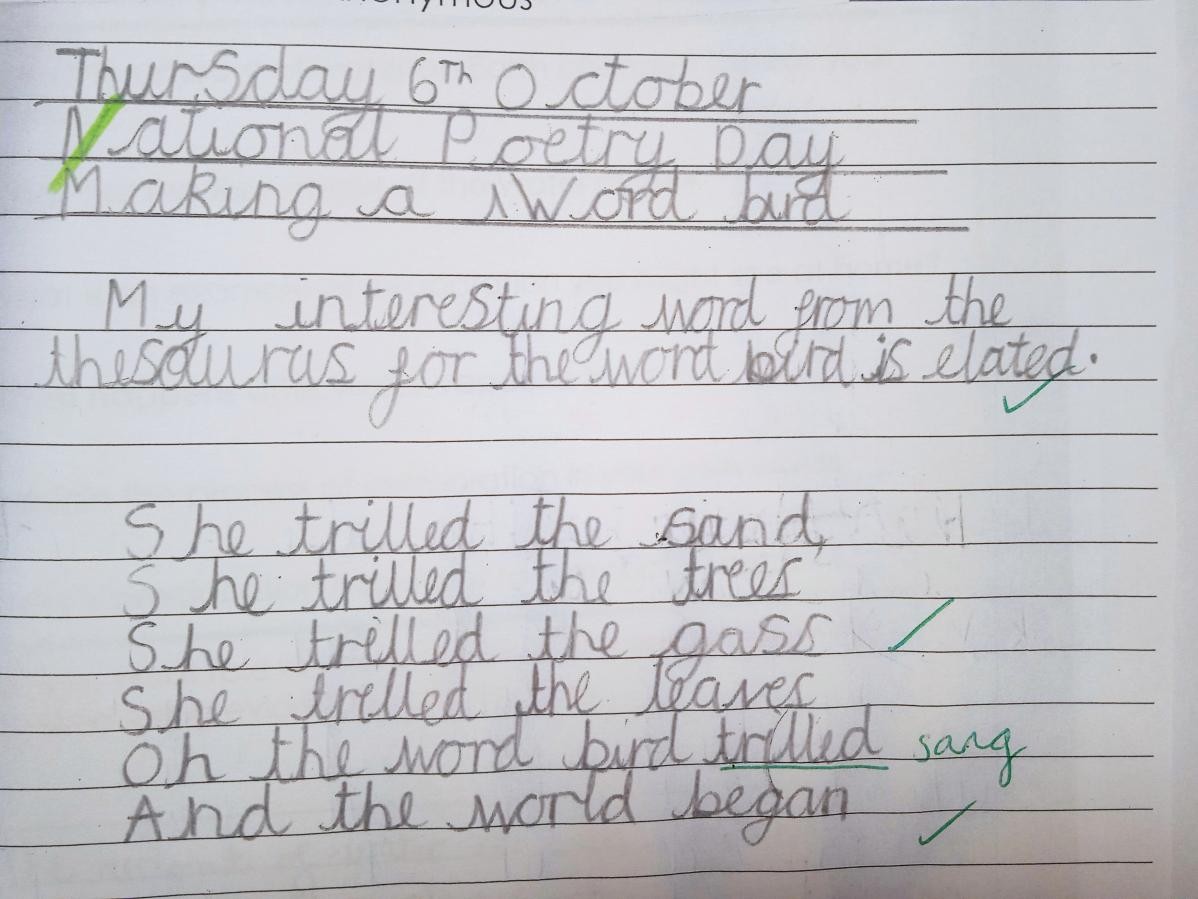 Thursday 6Th October
National Poetry Day
Making a Word bird
My interesting word from the
thesaurus for the word bird is elated.
She trilled the sand,
She trilled the trees
She trilled the gass
She trelled the leaves
Oh the word bird trilled sang
And the world began